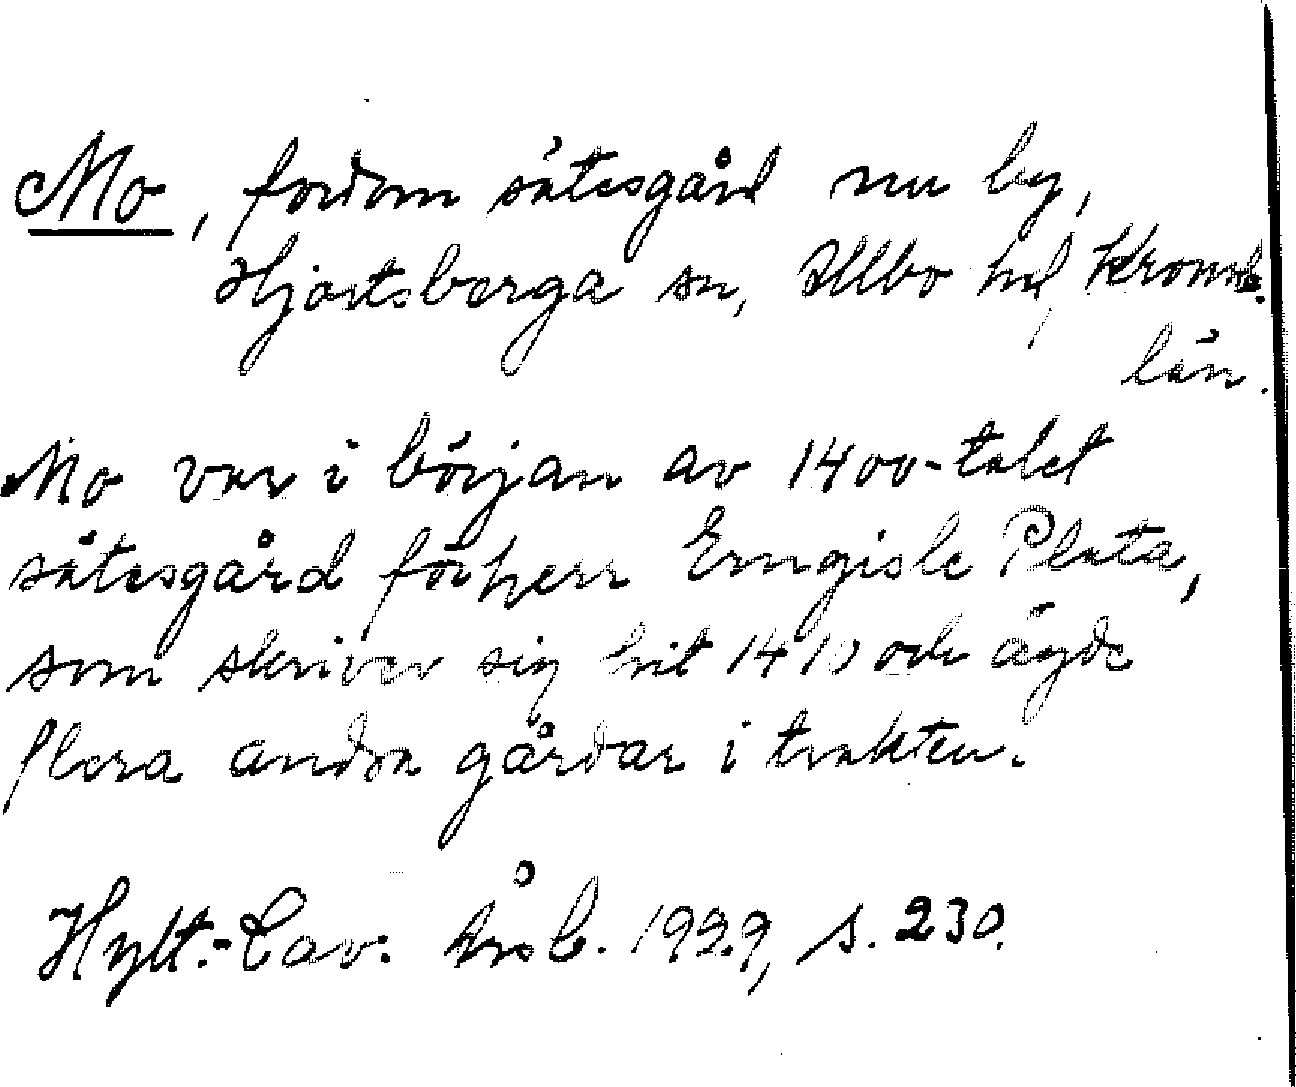 Mo, fordom sätesgård nu by,
Hjortsberga sn, Allbo hd, Kronob.
län.
Mo var i början av 1400-talet
sätesgård för herr Erngisle Plata,
som skriver sig hit 1410 och ägde
flera andra gårdar i trakten.
Hylt.-Cav. Årsb. 1929, s. 230.